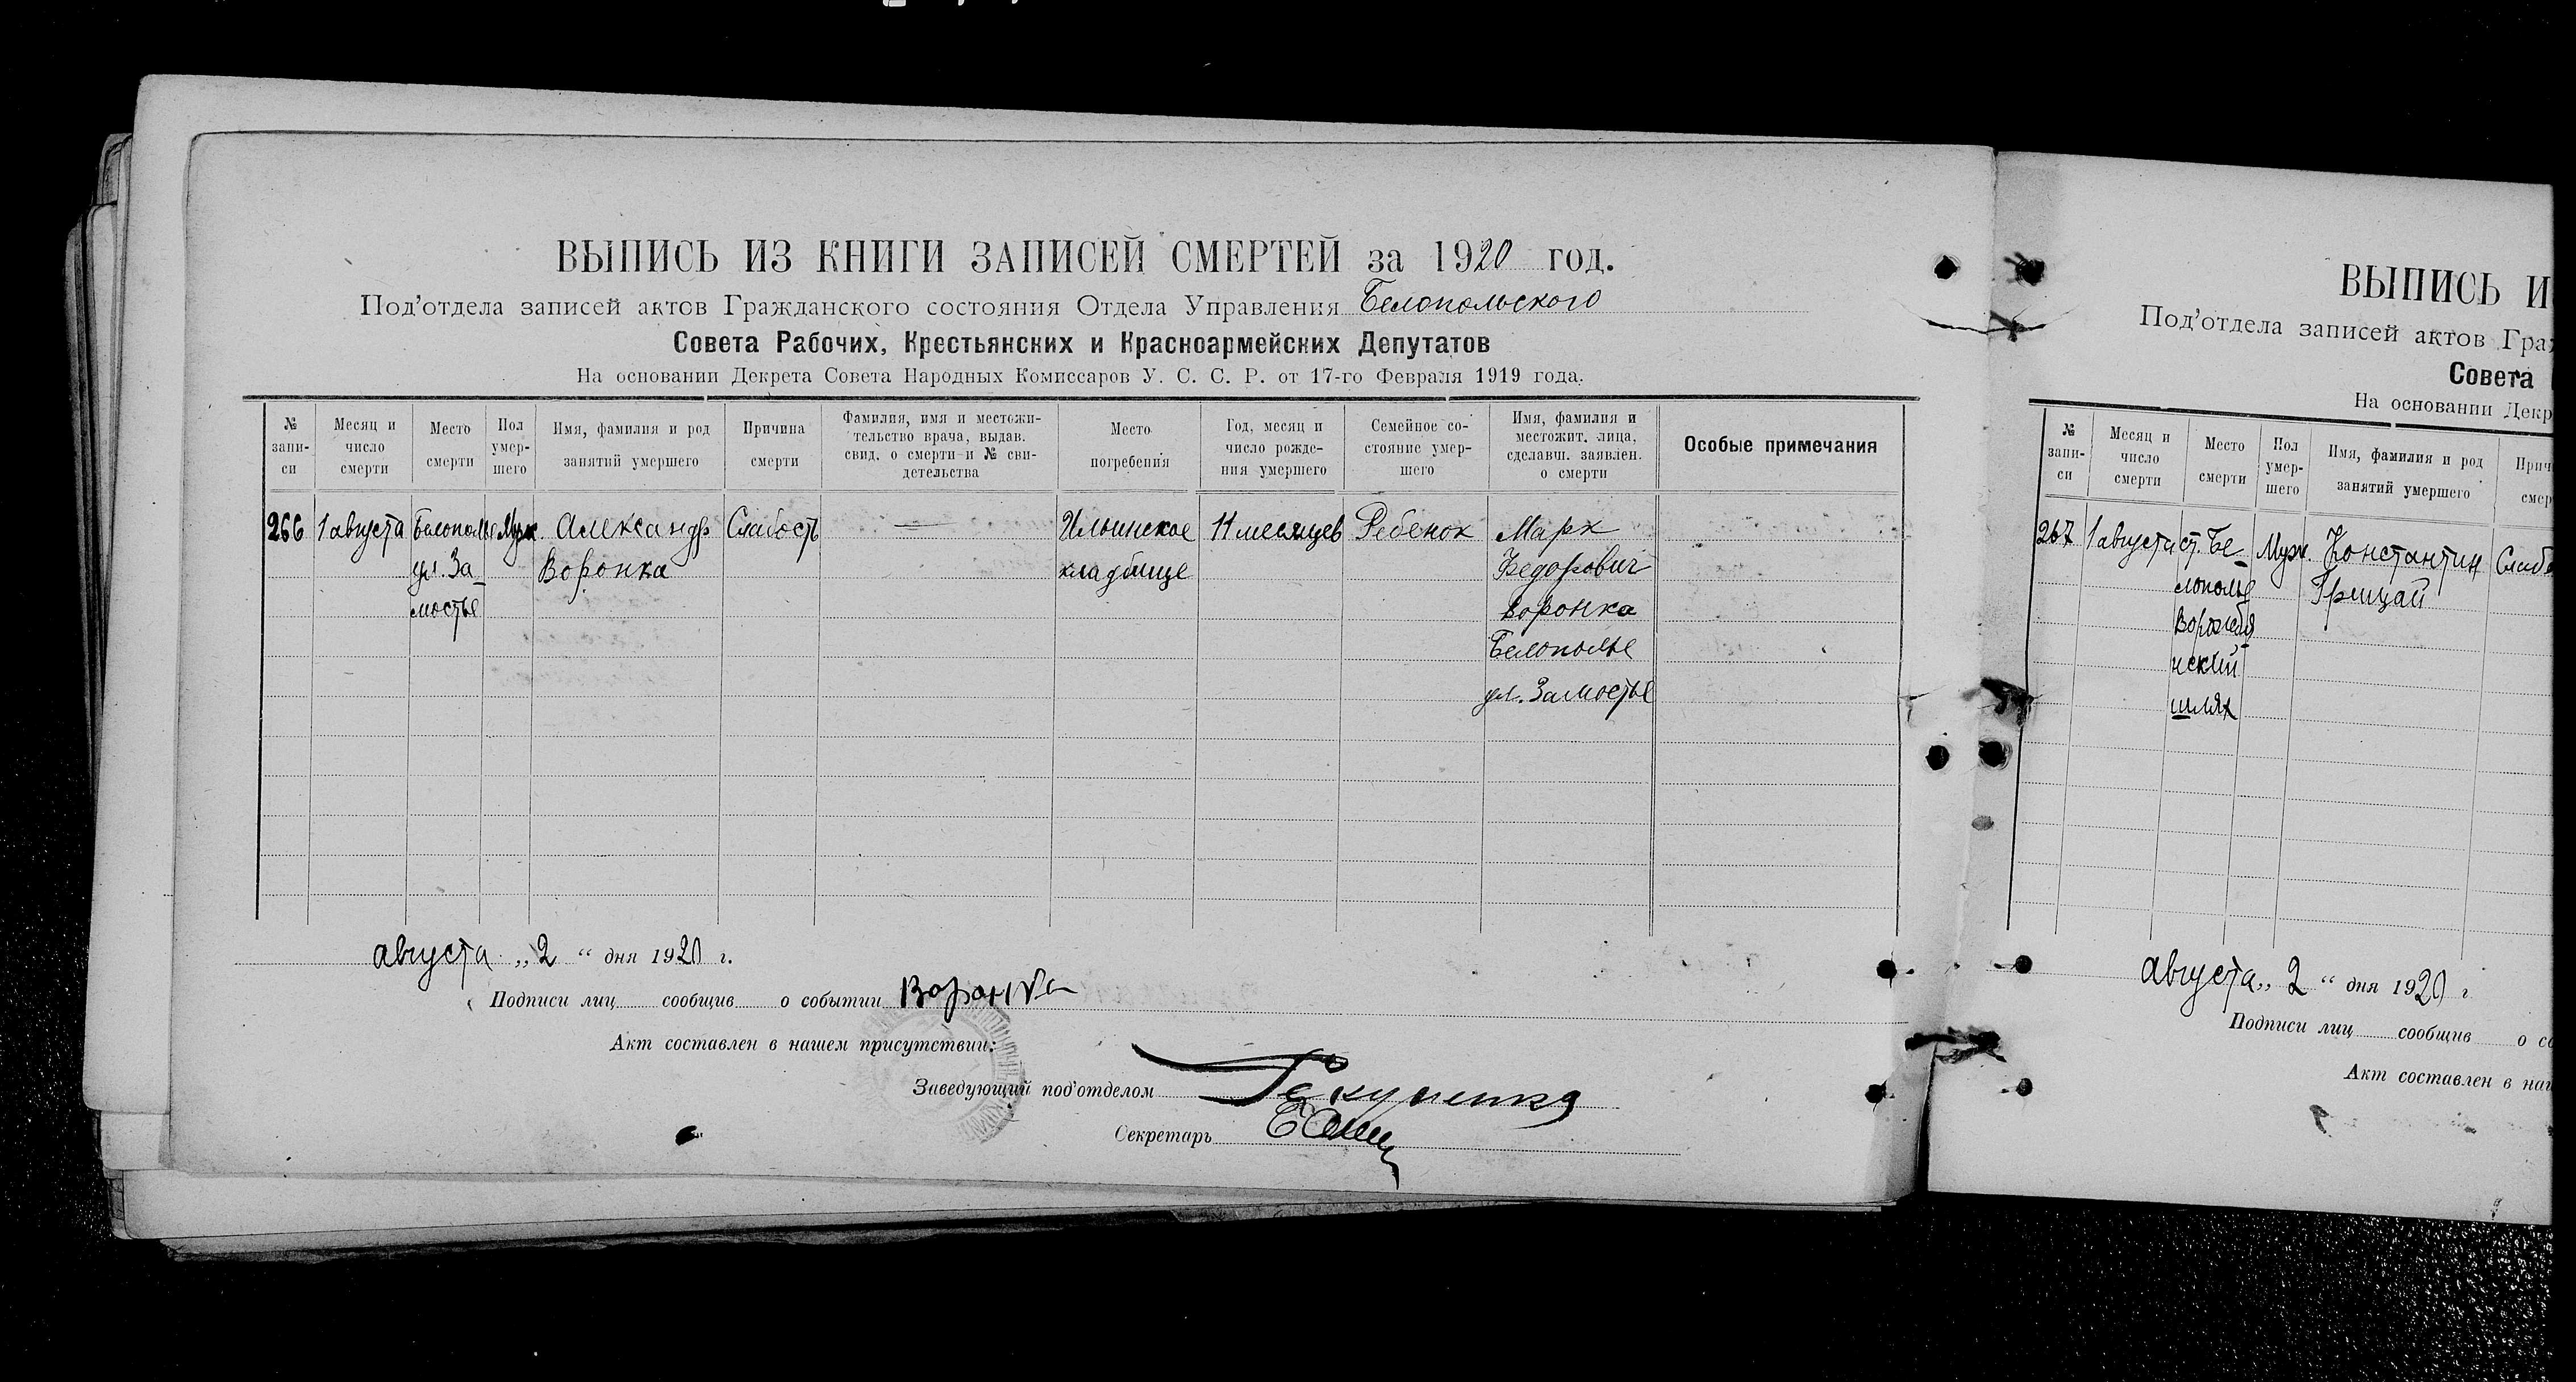 ВЫПИСЬ ИЗ КНИГИ ЗАПИСЕЙ СМЕРТЕЙ за 1920 год.
Под'отдела записей актов Гражданского состояния Отдела Управления Белопольского
Совета Рабочих, Крестьянских и Красноармейских Депутатов
На основании Декрета Совета Народных Комиссаров У. С. С. Р. от 17-го Февраля 1919 года.
№ запи-си
Месяц и число смерти
Место смерти
Пол умер-шего
Имя, фамилия и род занятий умершего
Причина смерти
Фамилия, имя и местожи-тельство врача, выдав. свид. о смерти и № сви-детельства
Место погребения
Год, месяц и число рожде-ния умершего
Семейное со-стояние умер-шего
Имя, фамилия и местожит. лица, сделавш. заявлен. о смерти
Особые примечания
266 1 августа Белополье Муж. Александр Слабость — Ильинское 11 месяцев Ребенок Марк
ул. За- Воронка кладбище Федорович
мостье Воронка
Белополье
ул. Замостье
августа „2“ дня 1920 г.
Подписи лиц сообщив о событии Воронка
Акт составлен в нашем присутствии:
Заведующий под'отделом
Секретарь
ВЫПИСЬ И
Под'отдела записей актов Гра
Совета
На основании Декр
№ запи-си
Месяц и число смерти
Место смерти
Пол умер-шего
Имя, фамилия и род занятий умершего
Прич
смер
267 1 августа ст. Бе- Муж. Константин Слаб
лополье Грицай
Ворожбя-
нский
шлях
августа „2“ дня 1920 г
Подписи лиц сообщив о со
Акт составлен в наш